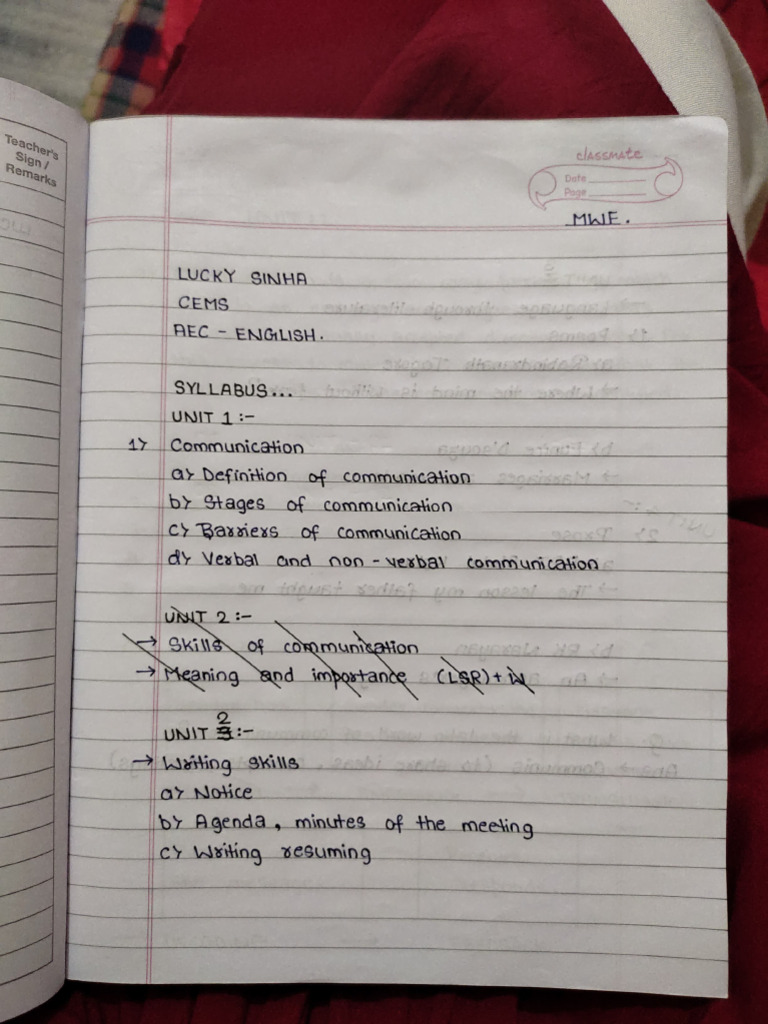 Teacher's
Sign /
Remarks
classmate
Date
Page
MWE.
LUCKY SINHA
CEMS
AEC - ENGLISH.
SYLLABUS...
UNIT 1 :-
1) Communication
a) Definition of communication
b) Stages of communication
c) Barriers of communication
d) Verbal and non-verbal communication
UNIT 2 :-
→ Skills of communication
→ Meaning and importance (LSR) + W
UNIT 2 :-
→ Writing skills
a) Notice
b) Agenda, minutes of the meeting
c) Writing resuming